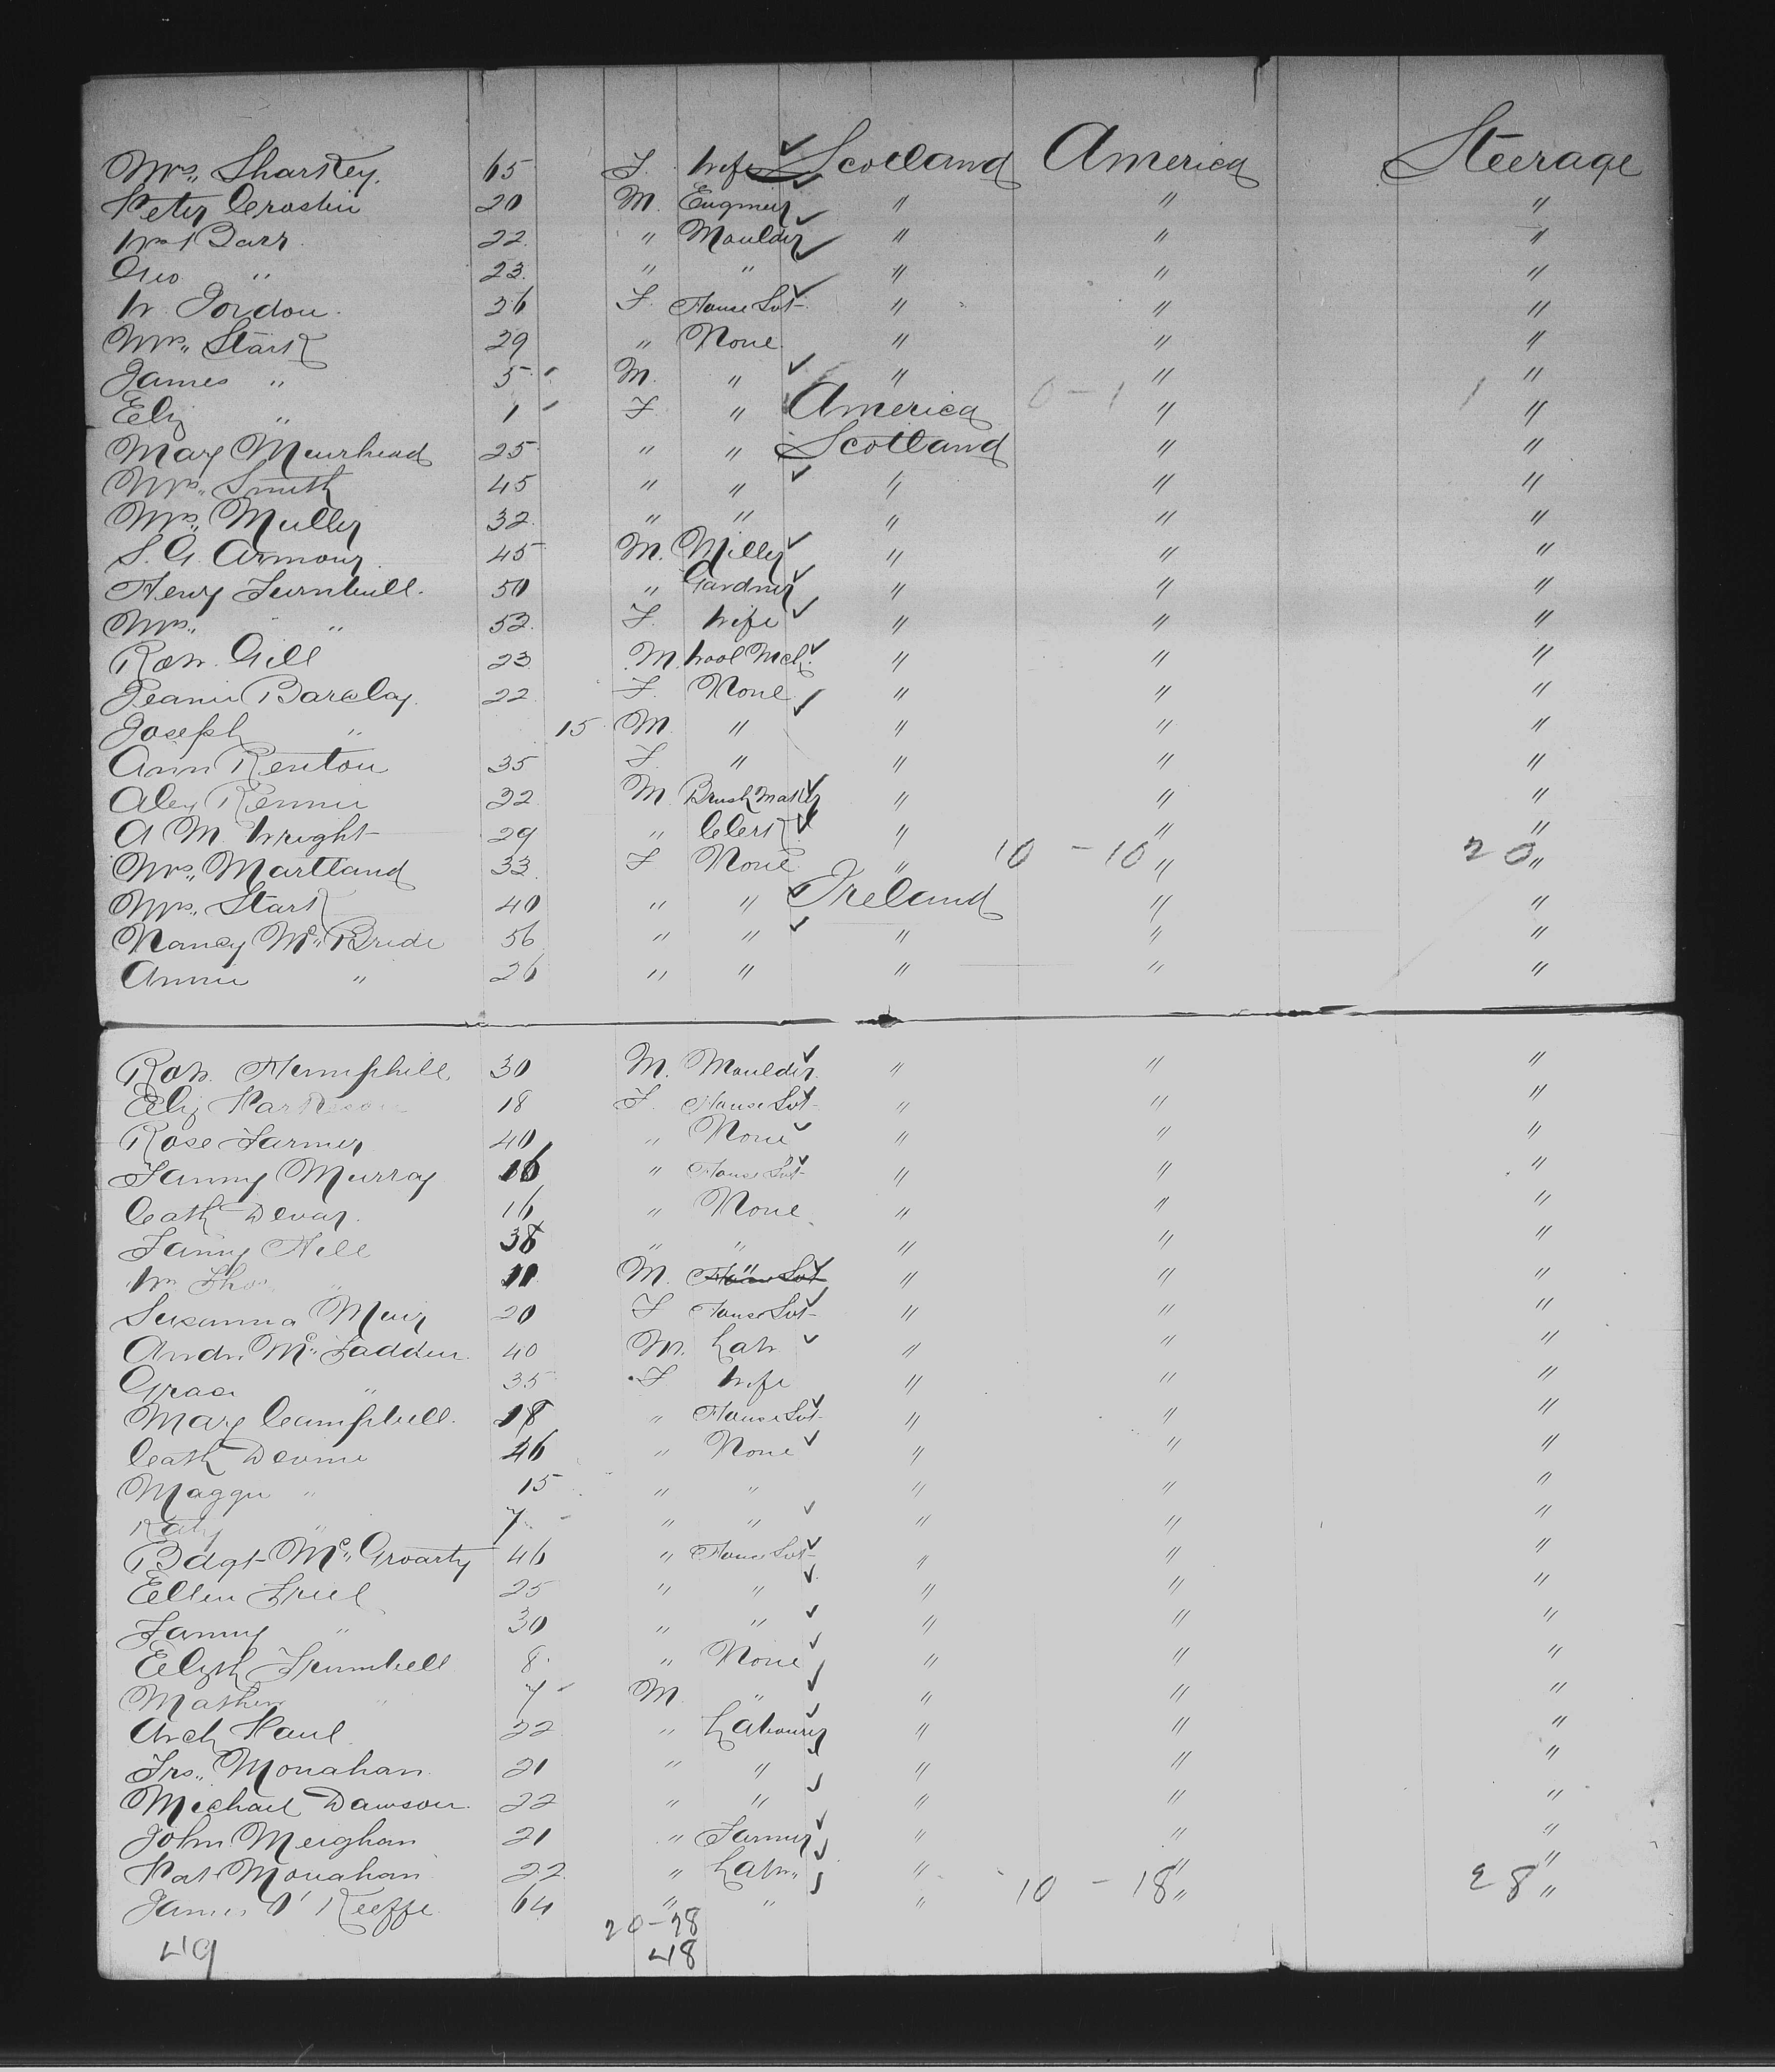 Mrs. Sharkey. 65 F. Wife Scotland America Steerage
Peter Crostin 20 M. Engineer " " "
Wm Barr. 22 " Moulder " " "
Geo " 23 " " " " "
W. Gordon. 26 F House Svt " " "
Mrs. Stark 29 " None " " "
James " 5 M. " " " "
Eliz " 1 F " America 0-1 " 1 "
Mary Muirhead 25 " " Scotland " "
Mrs. Smith 45 " " " " "
Mrs. Muller 32 " " " " "
S. G. Armour 45 M. Miller " " "
Henry Turnbull. 50 " Gardner " " "
Mrs. " 52 F. Wife " " "
Robt. Gill 23 M. Wool Mch. " " "
Jeanie Barclay. 22 F. None " " "
Joseph " 15 M " " " "
Ann Renton 35 F. " " " "
Alex Rennie 32 M Brush Maker " " "
A M. Wright 29 " Clerk " " "
Mrs. Martland 33 F None " 10-10 " 20 "
Mrs. Stark 40 " " Ireland " "
Nancy Mc Bride 56 " " " " "
Annie " 26 " " " " "
Robt. Hemphill. 30 M. Moulder. " " "
Eliz Parkeson 18 F. House Svt " " "
Rose Farmer 40 " None " " "
Fanny Murray 16 " House Svt " " "
Cath Devar. 16 " None " " "
Fanny Hill 38 " " " " "
Wm Thos. " 11 M. " " " "
Susanna Muir 20 F House Svt " " "
Andw. Mc Fadden 40 M. Labr " " "
Grace " 35 F Wife " " "
Mary Campbell. 18 " House Svt " " "
Cath Devine 46 " None " " "
Maggie " 15 " " " " "
Katy " 7 " " " " "
Bdgt Mc Groarty 46 " House Svt " " "
Ellen Friel 25 " " " " "
Fanny " 30 " " " " "
Elizth Trumbell 8 " None " " "
Mathew " 7 M " " " "
Arch Paul 22 " Labourer " " "
Frs. Monahan 21 " " " " "
Michael Dawson. 22 " " " " "
John Meighan 21 " Farmer " " "
Pat Monahan 22 " Labr. " " "
James O'Keeffe 64 " " " 10-18 " 28 "
20-28
49 48